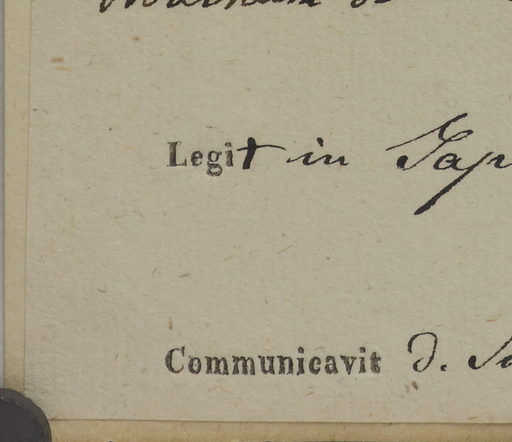 Legit in Jap
Communicavit D. S